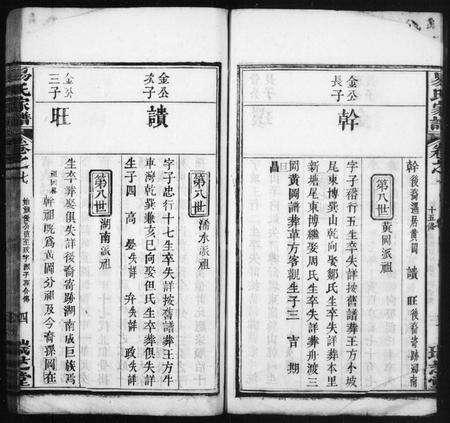 易氏宗譜
卷之七
幹後裔遷居黃岡 讃 旺後裔寄跡湖南
金公長子
幹
第八世
黃岡派祖
字子楷行五生卒失詳按舊譜葬王方小坡
尾東博巽山乾向娶鄒氏生卒失詳葬本里
新塘尾東博繼娶周氏生卒失詳葬舟渡三
岡黃岡譜葬草方客觀生子三 吉 期
昌
金公次子
讃
第八世
字子忠行十七生卒失詳按舊譜葬王方牛
車灣乾巽兼亥巳向娶但氏生卒葬俱失詳
生子四 高 晏失詳 弁失詳 政失詳
金公三子
旺
第八世
湖南派祖
生卒葬娶俱失詳後裔寄跡湖南成巨族焉
幹祖既爲黃岡分祖及今裔孫岡在
易氏宗譜
卷之七
四